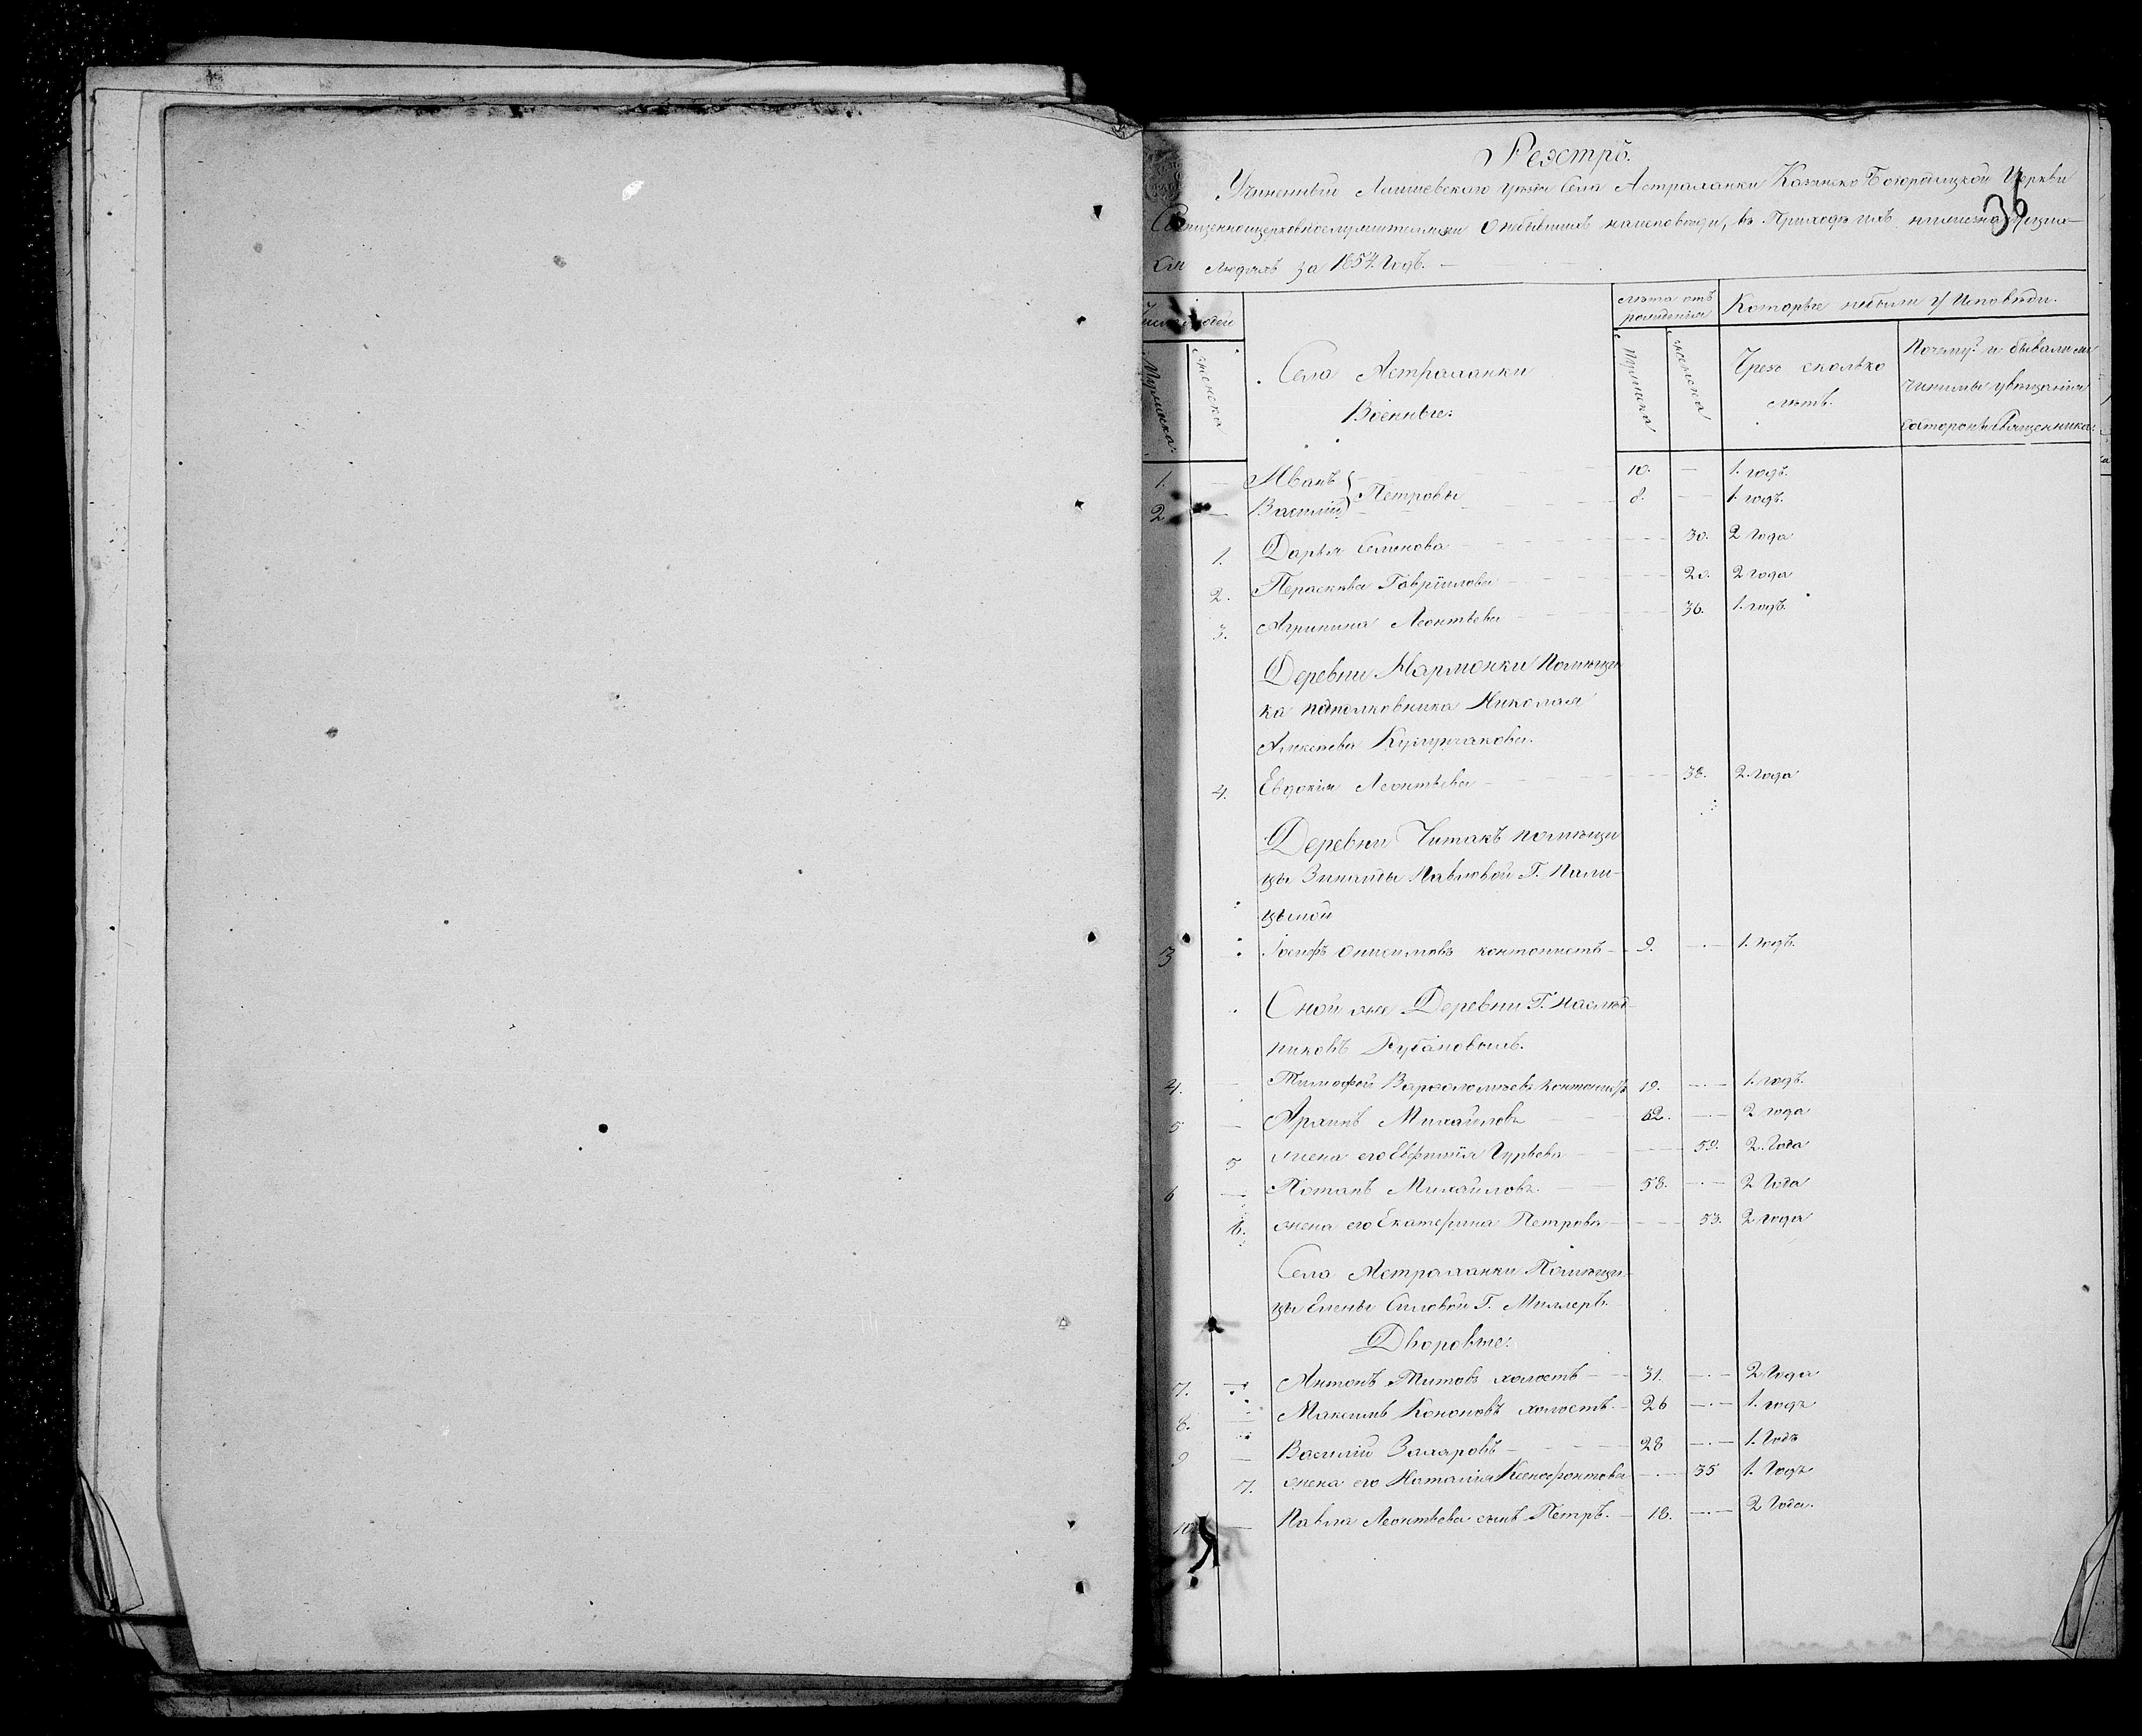 Реэстръ.
36
Учиненный Лаишевскаго уѣзда Села Астраханки Казанско Богородицкой Церкви
Священноцерковнослужителями О небывшихъ наисповѣди, въ Приходѣ ихъ
людяхъ за 1857. Годъ.
Число людей
лѣта отъ рожденія
Которые небыли у Исповѣди.
Мужеска
женска
Села Астраханки
Военные:
Мужеска
женска
Чрезъ сколько
лѣтъ.
Почему? и бывали ли
чинимы увѣщанія
состороны Священника.
1. — Иванъ } Петровы 10. — 1. годъ.
2 — Василій 8. — 1. годъ.
1. Дарья Семенова 30. 2 года
2. Пераскева Гаврїилова 20. 2 года
3. Агрипина Леонтьева 36. 1. годъ.
Деревни Мармонки Помѣщи
ка подполковника Николая
Алексѣева
4. Евдокія Леонтьева 38. 2. года
Деревни Читакъ помѣщи
цы Зинаиды Павловой Г. Пали-
цыной
3 Іосифъ Онисимовъ контонистъ 9. — 1. годъ.
Оной же Деревни Г. Наслѣд
никовъ Рубановыхъ.
4. — Тимофей Варфоломѣевъ контонистъ 19. — 1. годъ.
5 — Архипъ Михайловъ 62. — 2 года
5 жена его Евфимія Гурьева 59. 2. Года
6 — Потапъ Михайловъ 58. — 2 Года
6. жена его Екатерина Петрова 53. 2 года
Села Астраханки Помѣщи-
цы Елены Силовой Г. Миллеръ.
Дворовые:
7. — Антонъ Титовъ холостъ 31. — 2 Года
8. — Максимъ Кононовъ холостъ. 26 — 1. годъ
9 — Василій Захаровъ 28 — 1. Годъ
7. жена его Наталія Ксенофонтова — 35 1. Годъ
10. — Павла Леонтьева сынъ Петръ. 18. — 2 Года.